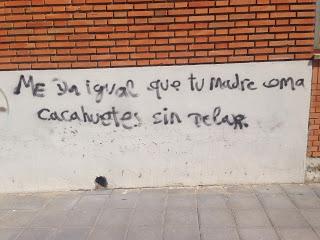 Me da igual que tu madre coma
cacahuetes sin pelar.